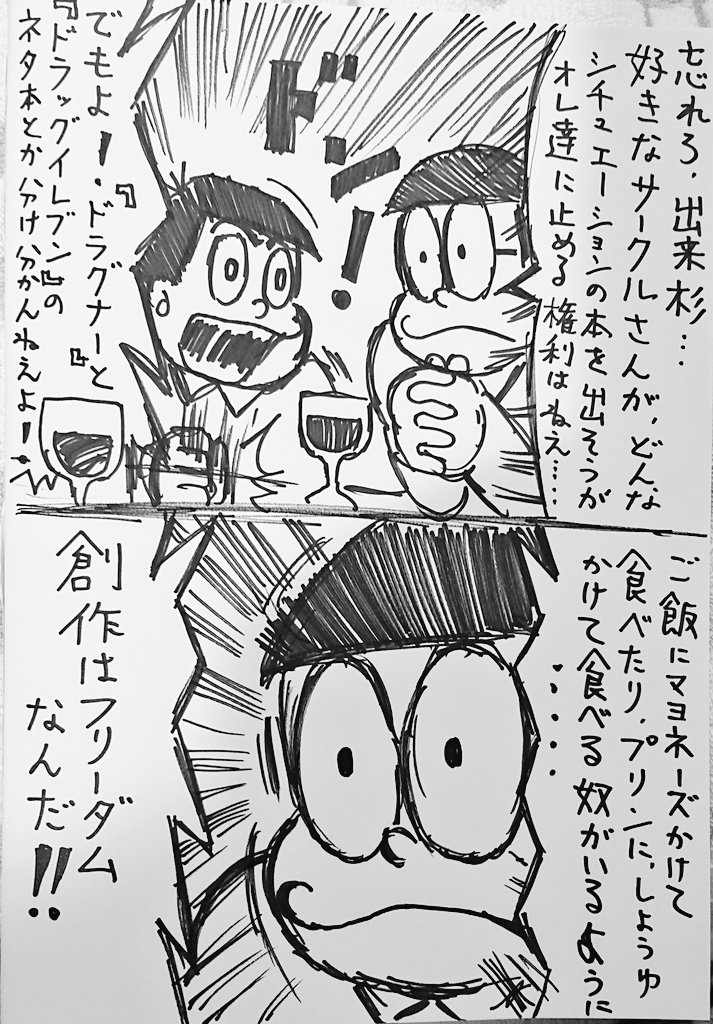 忘れろ、出来杉…
好きなサークルさんが、どんな
シチュエーションの本を出そうが
オレ達に止める権利はねえ……
ドン!
でもよー・『ドラグナーと
『ドラッグイレブン』の
ネタ本とか分け分かんねえよー!
ご飯にマヨネーズかけて
食べたり、プリンに、しょうゆ
かけて食べる奴がいるように
……
創作はフリーダム
なんだ!!